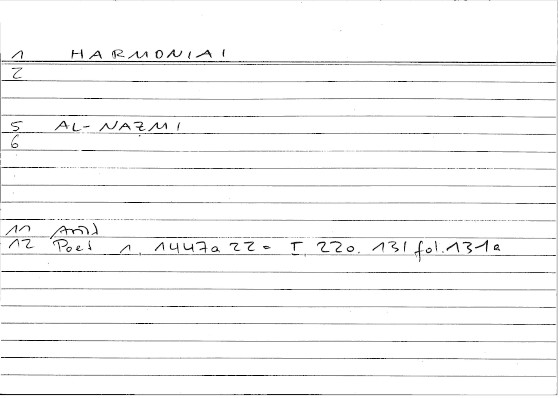 1 HARMONIAI
2
5 AL-NAZMI
6
11 Arist
12 Poet 1. 1447a 22 = I, 220. 13 | fol. 131a